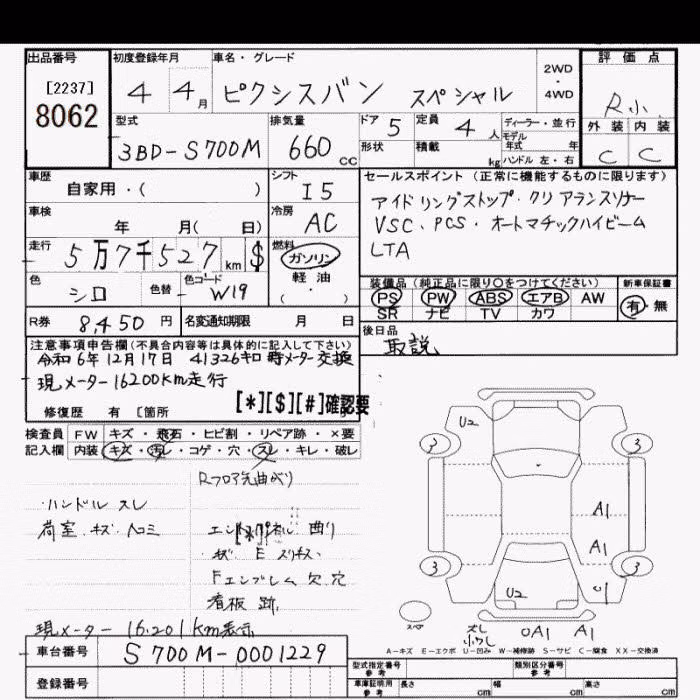 出品番号
[2237]
8062
初度登録年月
4 4月
車名・グレード
ピクシスバン スペシャル
2WD
・
4WD
評価点
R小
外装 内装
C C
型式
3BD-S700M
排気量
660 cc
ドア 5
定員 4人
形状
積載 kg
ディーラー・並行
モデル
年式 年
ハンドル 左・右
車歴
自家用・( )
シフト
I5
セールスポイント(正常に機能するものに限ります)
アイドリングストップ・クリアランスソナー
VSC、PCS・オートマチックハイビーム
LTA
車検
年 月( 日)
冷房
AC
走行
5万7千527km $
燃料
ガソリン
軽油・
( )
色
シロ
色替
色コード
W19
装備品(純正品に限り○をつけてください)
PS PW ABS エアB AW
SR ナビ TV カワ
新車保証書
有・無
R券 8,450円
名変通知期限 月 日
後日品
取説
注意事項申告欄(不具合内容等は具体的に記入して下さい)
令和6年12月17日 41326キロ時メーター交換
現メーター16200km走行
[*][$][#]確認要
修復歴 有 [箇所
検査員
記入欄
FW キズ・飛石・ヒビ割・リペア跡・×要
内装 キズ・汚レ・コゲ・穴・スレ・キレ・破レ
Rフロア先曲がり
ハンドル スレ
荷室 キズ・ヘコミ
[*]
曲り
Fエンブレム欠、穴
看板跡
現メーター 16.201km表示
U2
3 3
A1
A1
3 3
U2
A1 A1
A-キズ E-エクボ U-凹み W-補修跡 S-サビ C-腐食 XX-交換済
車台番号 S700M-0001229
登録番号
型式指定番号
参考
類別区分番号
参考
車庫証明用
参考
長さ cm 幅 cm 高さ cm